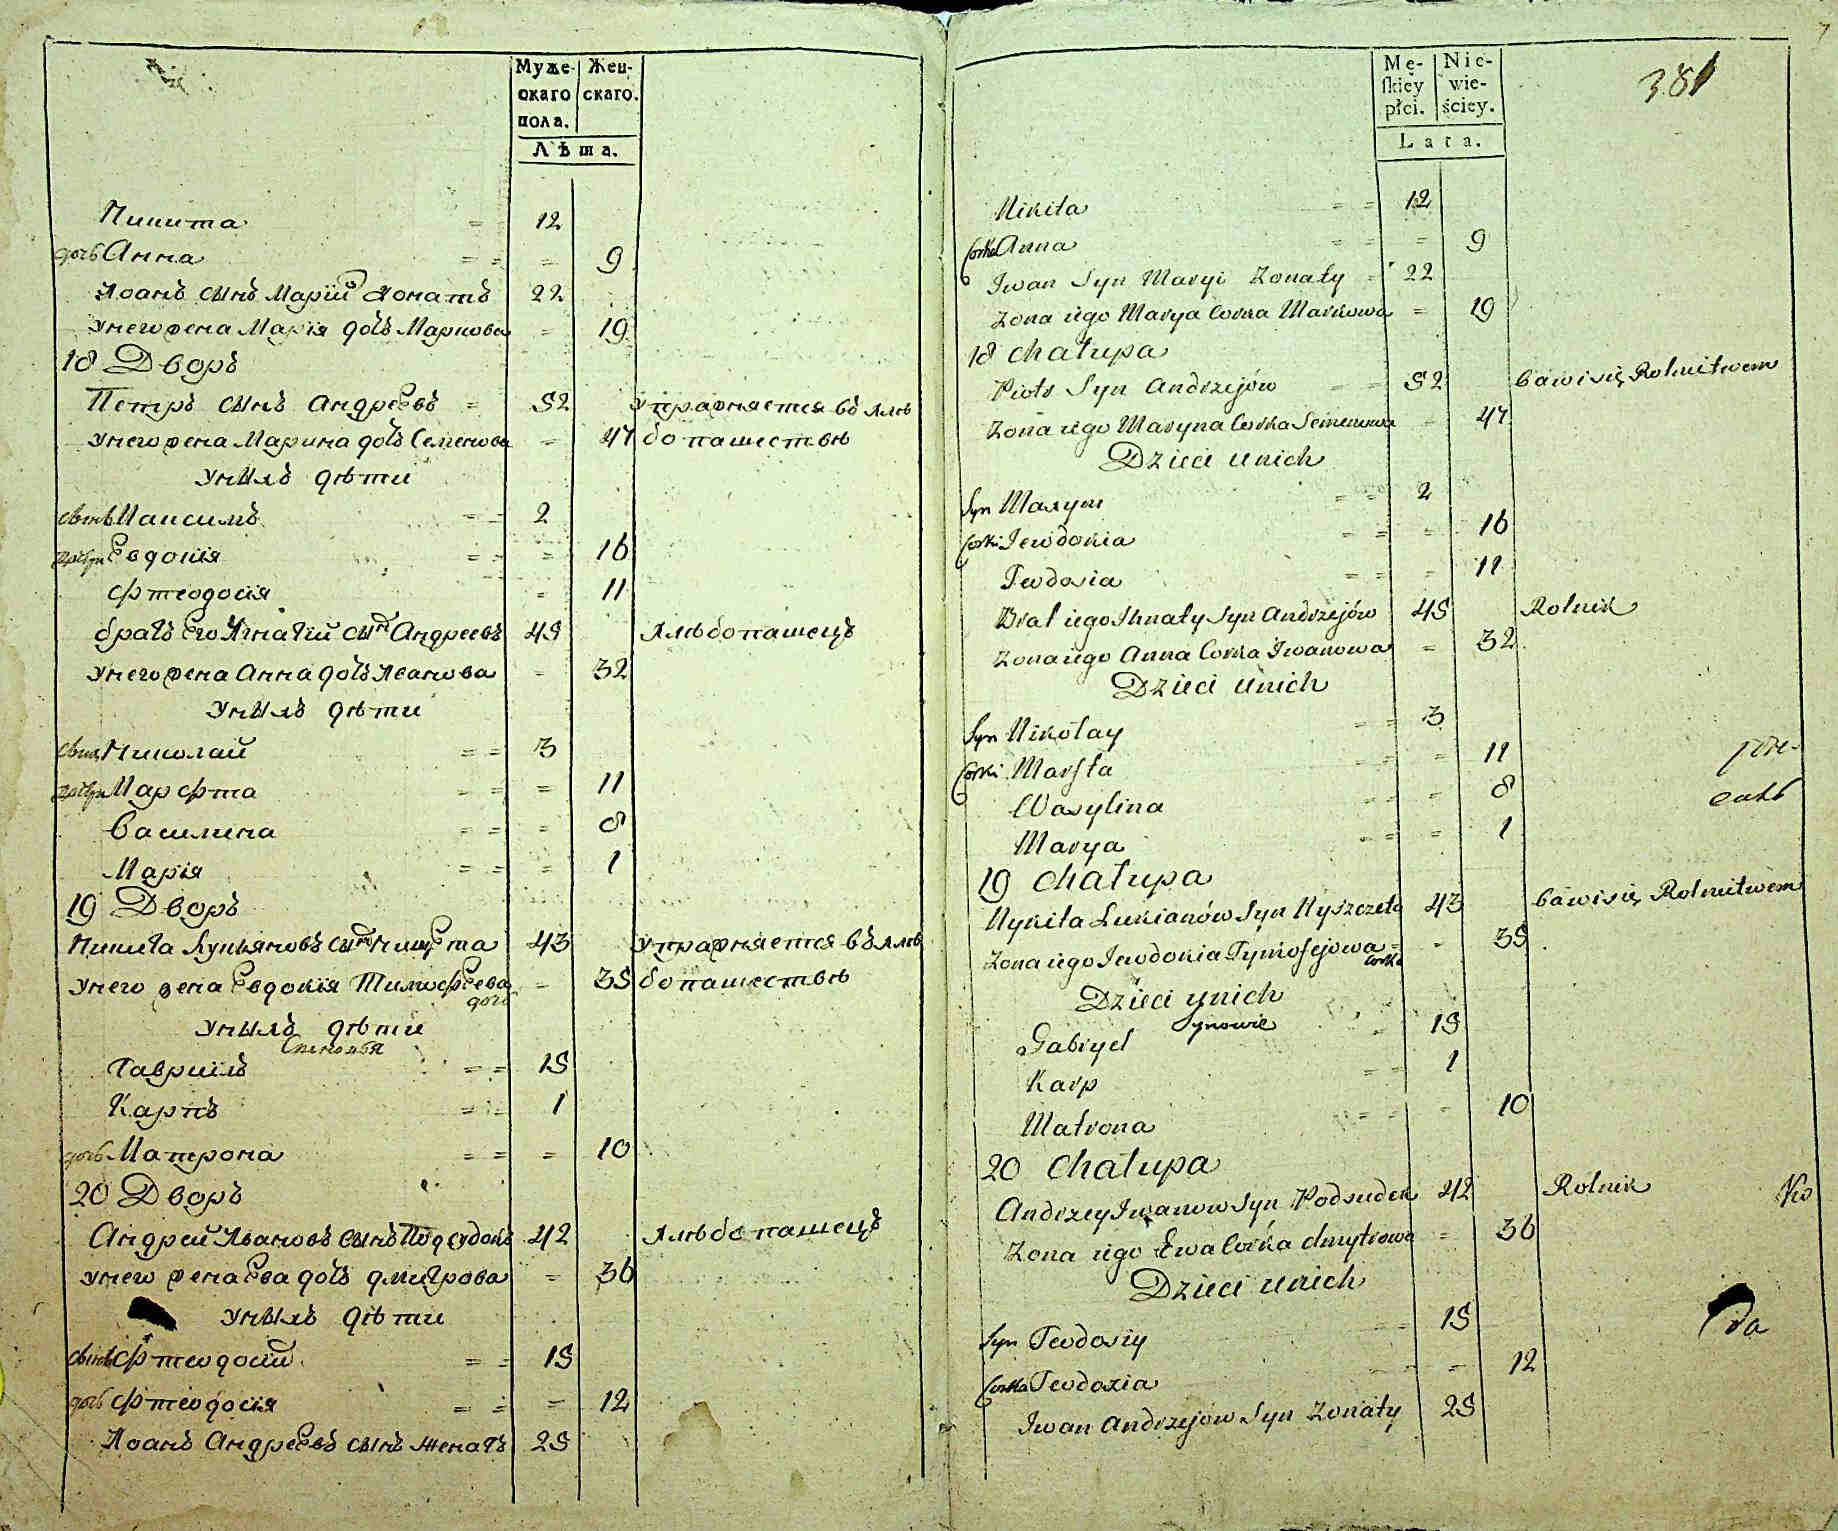 Муже- Жен-
скаго скаго.
пола.
Лѣта.
Никита = 12
дочь Анна = = = 9
Иоанъ сынъ Марiи жонатъ 22
Унего жена Марiя дочь Маркова = 19
18 Дворъ
Петръ сынъ Андреевъ = 52 упражняется въ хлѣ
Унего жена Марина дочь Семенова = 47 бопашествѣ
Унихъ дѣти
сынъ Максимъ = = 2
дочери Евдокiя = = = 16
Фтеодосiя = 11
братъ Его Игнатiй сынъ Андреевъ 45 Хлѣбопашецъ
Унего жена Анна дочь Иванова = 32
Унихъ дѣти
сынъ Николай = = 3
дочери Марфта = = = 11
Василина = = = 8
Марiя = = = 1
19 Дворъ
Никита Лукьяновъ сынъ Нищета 43 упражняется въ хлѣ
Унего жена Евдокiя Тимофеева = 35 бопашествѣ
дочь
Унихъ дѣти
Сыновья
Гаврiилъ = = 15
Карпъ = = 1
дочь Матрона = = = 10
20 Дворъ
Андрей Ивановъ сынъ Подсудокъ 42 Хлѣбопашецъ
Унего жена Ева дочь Дмитрова = 36
Унихъ дѣти
сынъ Фтеодосiй = = 15
дочь Фтеодосiя = = = 12
Иоанъ Андреевъ сынъ женатъ 25
Mę- Nie-
skiey wie-
płci. ściey.
Lata.
381
Nikita = = 12
Corka Anna = = = 9
Iwan Syn Maryi Zonaty = 22
Zona iego Marya Corka Markowa = 19
18 Chałupa
Piotr Syn Andrzejów = = 52 bawi się Rolnictwem
Zona iego Maryna Corka Semenowa = 47
Dzieci unich
Syn Maxym = = 2
Corki Jewdokia = = = 16
Teodosia = = = 11
Brat iego Ihnaty Syn Andrzejów 45 Rolnik
Zona iego Anna Corka Iwanowa = 32
Dzieci unich
Syn Nikołay = = 3
Corki Marfta = = = 11
Wasylina = = = 8
Marya = = = 1
19 Chałupa
Nykita Łukianów Syn Nyszczeta 43 bawi się Rolnictwem
Zona iego Jewdokia Tymofejowa = = 35
Corka
Dzieci unich
Synowie
Gabryel = 15
Karp = = 1
Matrona = = = 10
20 Chałupa
Andrzey Iwanow Syn Podsudek 42 Rolnik
Zona iego Ewa Corka dmytrowa = 36
Dzieci unich
Syn Teodosiy = = 15
da
Corka Teodozia = = = 12
Iwan Andrzejów Syn Zonaty 25